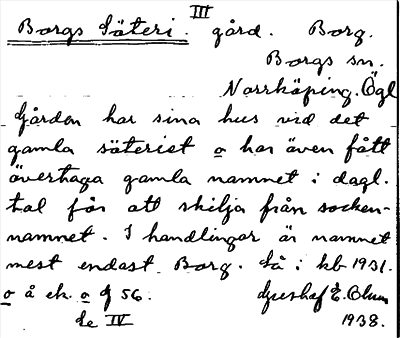 III
Borgs Säteri. gård. Borg.
Borgs sn.
Norrköping. Ögl
Gården har sina hus vid det
gamla säteriet o har även fått
övertaga gamla namnet i dagl.
tal för att skilja från socken-
namnet. I handlingar är namnet
mest endast Borg. Så i kb 1931.
o å ek. o J 56.
Se IV 1938.